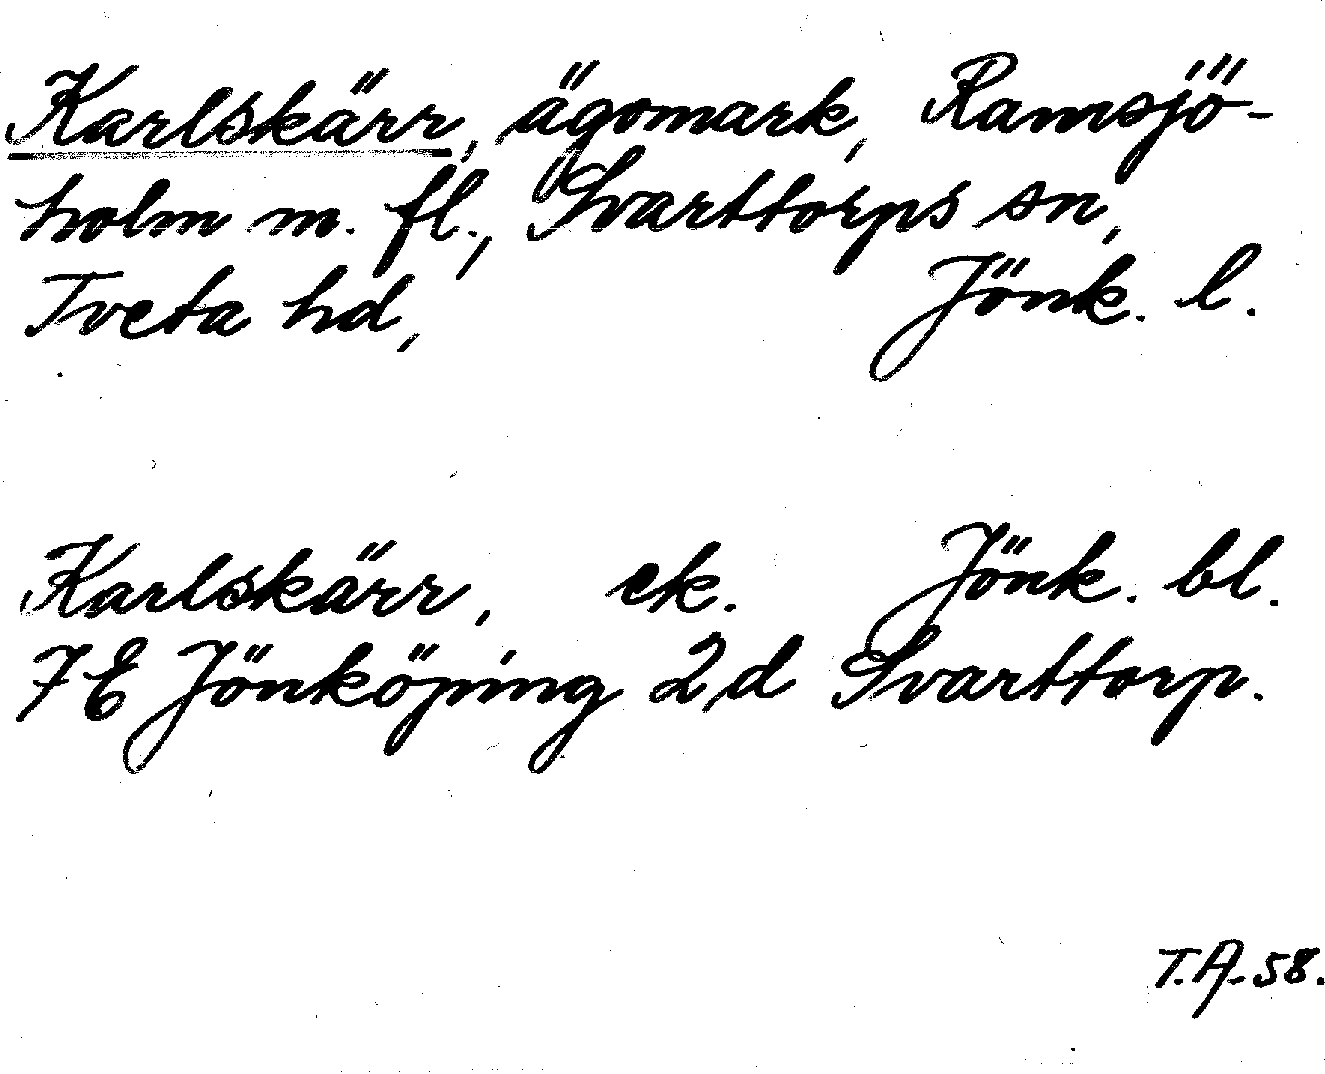 Karlskärr, ägomark, Ramsjö-
holm m. fl., Svarttorps sn,
Tveta hd, Jönk. l.
Karlskärr, ek. Jönk. bl.
7E Jönköping 2,d Svarttorp.
T.A-58.